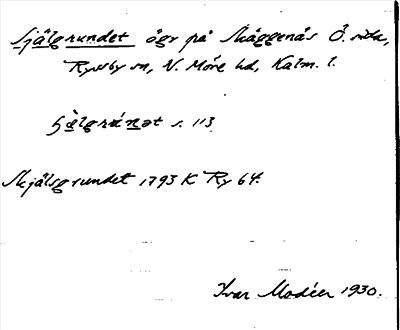 Själgrundet ögr på Skäggenäs Ö. sida,
Ryssby sn, N. Möre hd, Kalm. l.
s. 113
Skjälsgrundet 1793 K Ry 64.
Ivar Modéer 1930.